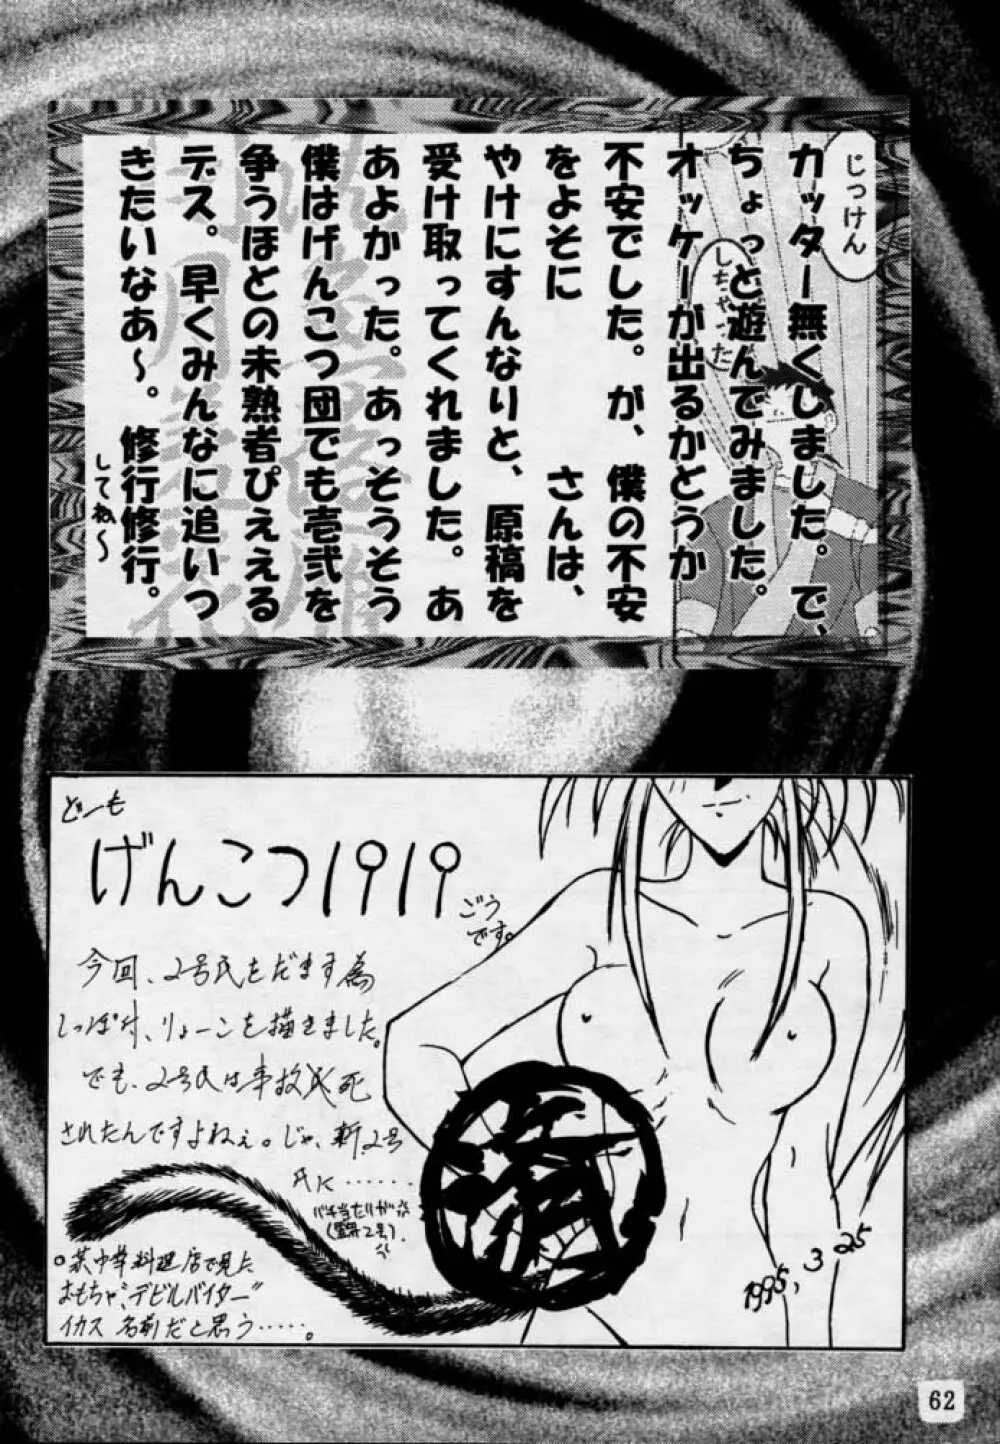 じっけん
しちゃった
カッター無くしました。で、
ちょっと遊んでみました。
オッケーが出るかとうか
不安でした。が、僕の不安
をよそに　　　さんは、
やけにすんなりと、原稿を
受け取ってくれました。あ
あよかった。あっそうそう
僕はげんこつ団でも壱弐を
争うほどの未熟者ぴええる
デス。早くみんなに追いつ
きたいなあ〜。修行修行。
してね〜
どーも
げんこつ1919
ごう
です。
今回、2号氏をだます為
しっぽ付、りょーこを描きました。
でも、2号氏は事故死
されたんですよねぇ。じゃ、新2号
氏に……
バチ当たりが
済
1995, 3 25
某中華料理店で見た
おもちゃ"デビルバイター"
イカス名前だと思う……。
62